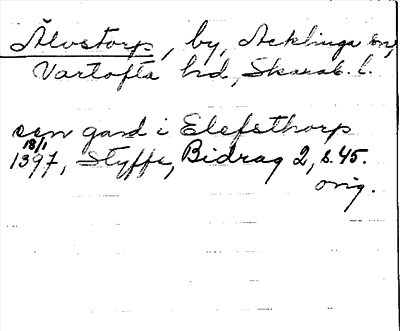 Älvstorp, by, Acklinga sn,
Vartofta hd, Skarab. l.
sin gard i Elefsthorp
18/1
1397, Styffe, Bidrag 2, s. 45.
orig.